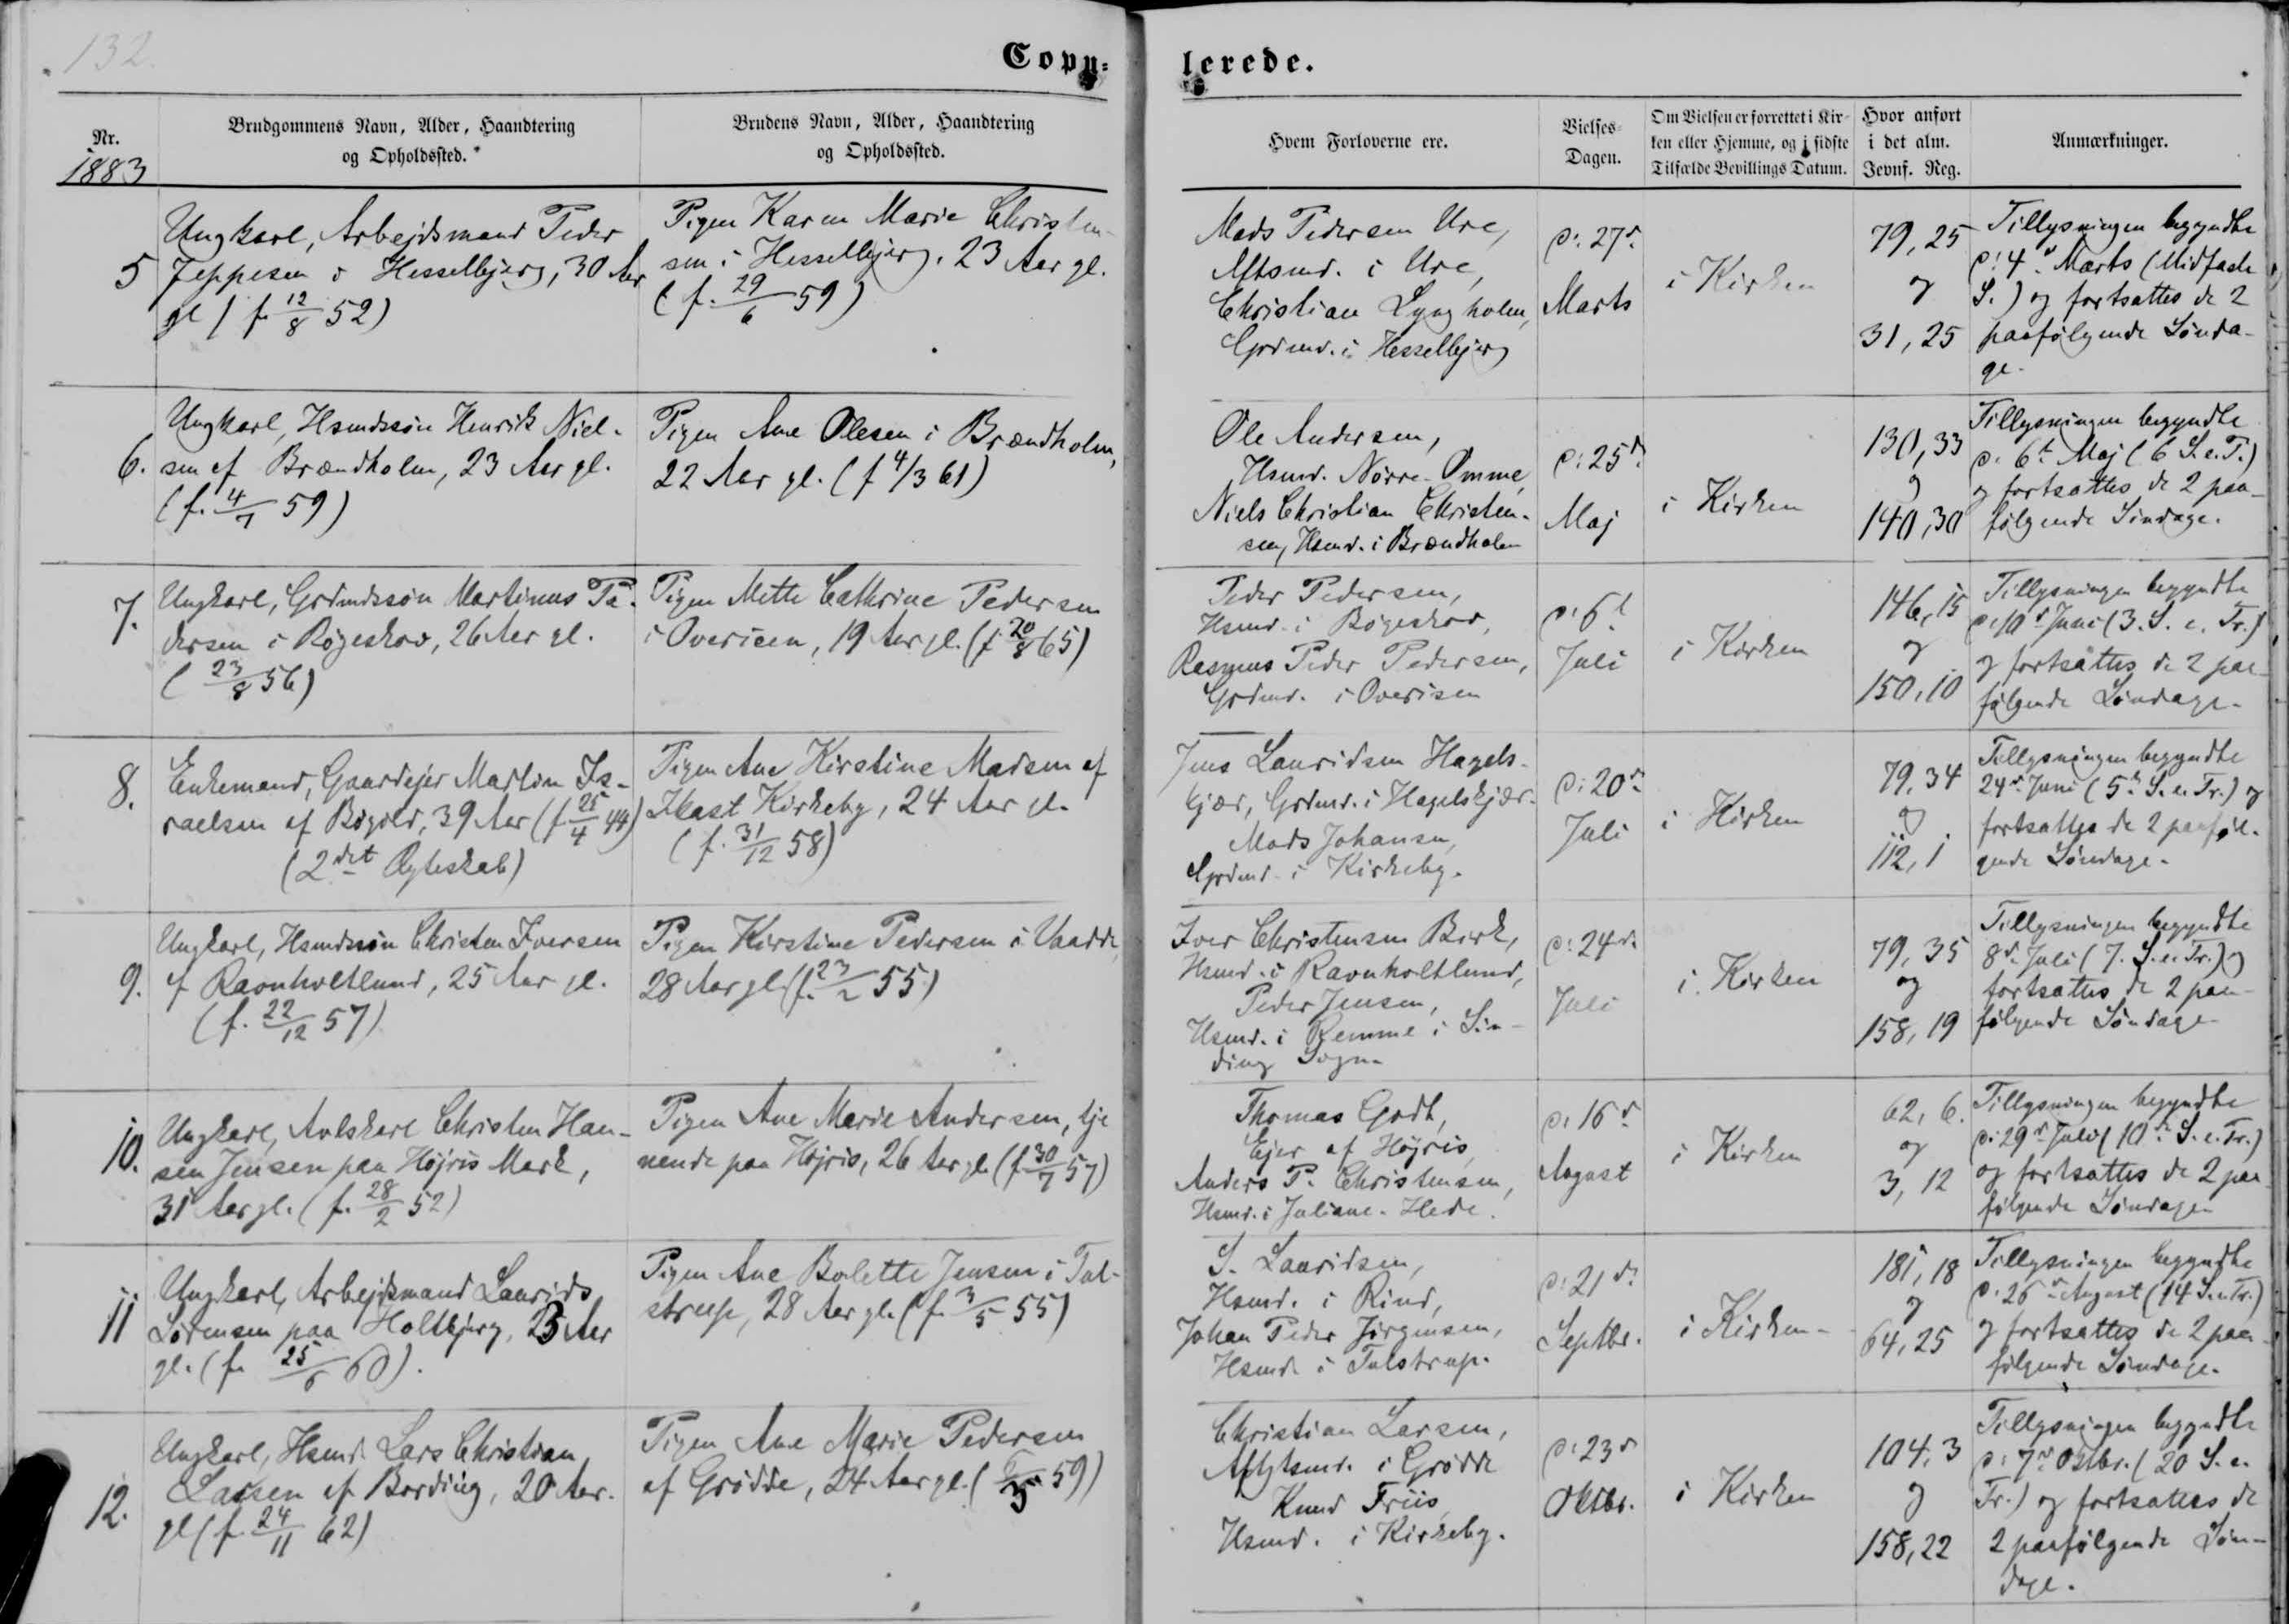 132.
Copu-
lerede.
Nr.
1883
Brudgommens Navn, Alder, Haandtering
og Opholdssted.
Brudens Navn, Alder, Haandtering
og Opholdssted.
Hvem Forloverne ere.
Vielses-
Dagen.
Om Vielsen er forrettet i Kir-
ken eller Hjemme, og i sidste
Tilfælde Bevillings Datum.
Hvor anført
i det alm.
Jevnf. Reg.
Anmærkninger.
5
Ungkarl, Arbejdsmand Peder
Jeppesen i Hesselbjerg, 30 Aar
gl (f. 12/8 52)
Pigen Karen Marie Christen-
sen i Hesselbjerg, 23 Aar gl.
(f. 29/6 59)
Mads Pedersen Ure,
Aftsmd. i Ure,
Christian Lyngholm,
Grdmd. i Hesselbjerg
d: 27d.
Marts
i Kirken
79, 25
og
31, 25
Tillysningen begyndte
d: 4d. Marts (Midfaste
S.) og fortsattes de 2
paafølgende Sønda-
ge.
6.
Ungkarl, Hsmdssøn Henrik Niel-
sen af Brændholm, 23 Aar gl.
(f. 4/7 59)
Pigen Ane Olesen i Brændholm,
22 Aar gl. (f 4/3 61)
Ole Andersen,
Hsmd. Nørre-Omme,
Niels Christian Christen-
sen, Hsmd. i Brændholm
d: 25d.
Maj
i Kirken
130, 33
og
140, 30
Tillysningen begyndte
d. 6t Maj (6 S. e. P.)
og fortsattes de 2 paa-
følgende Søndage.
7.
Ungkarl, Grdmdssøn Martinus Pe-
dersen i Bøgeskov, 26 Aar gl.
(23/8 56)
Pigen Mette Cathrine Pedersen
i Overisen, 19 Aar gl. (f. 20/8 65)
Peder Pedersen,
Hsmd. i Bøgeskov,
Rasmus Peder Pedersen,
Grdmd. i Overisen
d: 6t
Juli
i Kirken
146, 15
og
150, 10
Tillysningen begyndte
d. 10d Juni (3. S. e. Tr.)
og fortsattes de 2 paa-
følgende Søndage.
8.
Enkemand, Gaardejer Martin Is-
raelsen af Bøgild, 39 Aar (f. 25/4 44)
(2det Ægteskab)
Pigen Ane Kirstine Madsen af
Ikast Kirkeby, 24 Aar gl.
(f. 31/12 58)
Jens Lauridsen Hagels-
kjær, Grdmd. i Hagelskjær.
Mads Johansen,
Grdmd. i Kirkeby.
d: 20d.
Juli
i Kirken
79, 34
og
112, 1
Tillysningen begyndte
24d. Juni (5te S. e. Tr.) og
fortsattes de 2 paaføl-
gende Søndage.
9.
Ungkarl, Hsmdssøn Christen Iversen
af Ravnholtlund, 25 Aar gl.
(f. 22/12 57)
Pigen Kirstine Pedersen i Vaadde,
28 Aar gl. (f. 23/2 55)
Iver Christensen Birk,
Hsmd. i Ravnholtlund,
Peder Jensen,
Hsmd. i Remme i Sin-
ding Sogn.
d: 24d.
Juli
i Kirken
79, 35
og
158, 19
Tillysningen begyndte
8d. Juli (7. S. e. Tr.) og
fortsattes de 2 paa-
følgende Søndage
10.
Ungkarl, Avlskarl Christen Han-
sen Jensen paa Højris Mark,
31 Aar gl. (f. 28/2 52)
Pigen Ane Marie Andersen, tje
nende paa Højris, 26 Aar gl. (f. 30/7 57)
Thomas Godt,
Ejer af Højris,
Anders P. Christensen,
Hsmd. i Juliane-Hede.
d. 16d
August
i Kirken
62, 6.
og
3, 12
Tillysningen begyndte
d: 29d Juli (10de S. e. Tr.)
og fortsattes de 2 paa-
følgende Søndage
11
Ungkarl, Arbejdsmand Laurids
Sørensen paa Holtbjerg, 23 Aar
gl. (f. 25/6 60).
Pigen Ane Bolette Jensen i Tul-
strup, 28 Aar gl. (f. 3/5 55)
S. Lauridsen,
Hsmd. i Rind,
Johan Peder Jørgensen,
Hsmd. i Tulstrup.
d: 21d.
Septbr.
i Kirken
181, 18
og
64, 25
Tillysningen begyndte
d. 26d August (14 S. e. Tr.)
og fortsattes de 2 paa-
følgende Søndage.
12.
Ungkarl, Hsmd. Lars Christian
Larsen af Bording, 20 Aar.
gl (f. 24/11 62)
Pigen Ane Marie Pedersen
af Grødde, 24 Aar gl.
Christian Larsen,
Aftgtsmd. i Grødde
Knud Friis
Hsmd. i Kirkeby.
d: 23d
Oktbr.
i Kirken
104, 3
og
158, 22
Tillysningen begyndte
d: 7d. Oktbr. (20 S. e.
Tr.) og fortsattes de
2 paafølgende Søn-
dage.